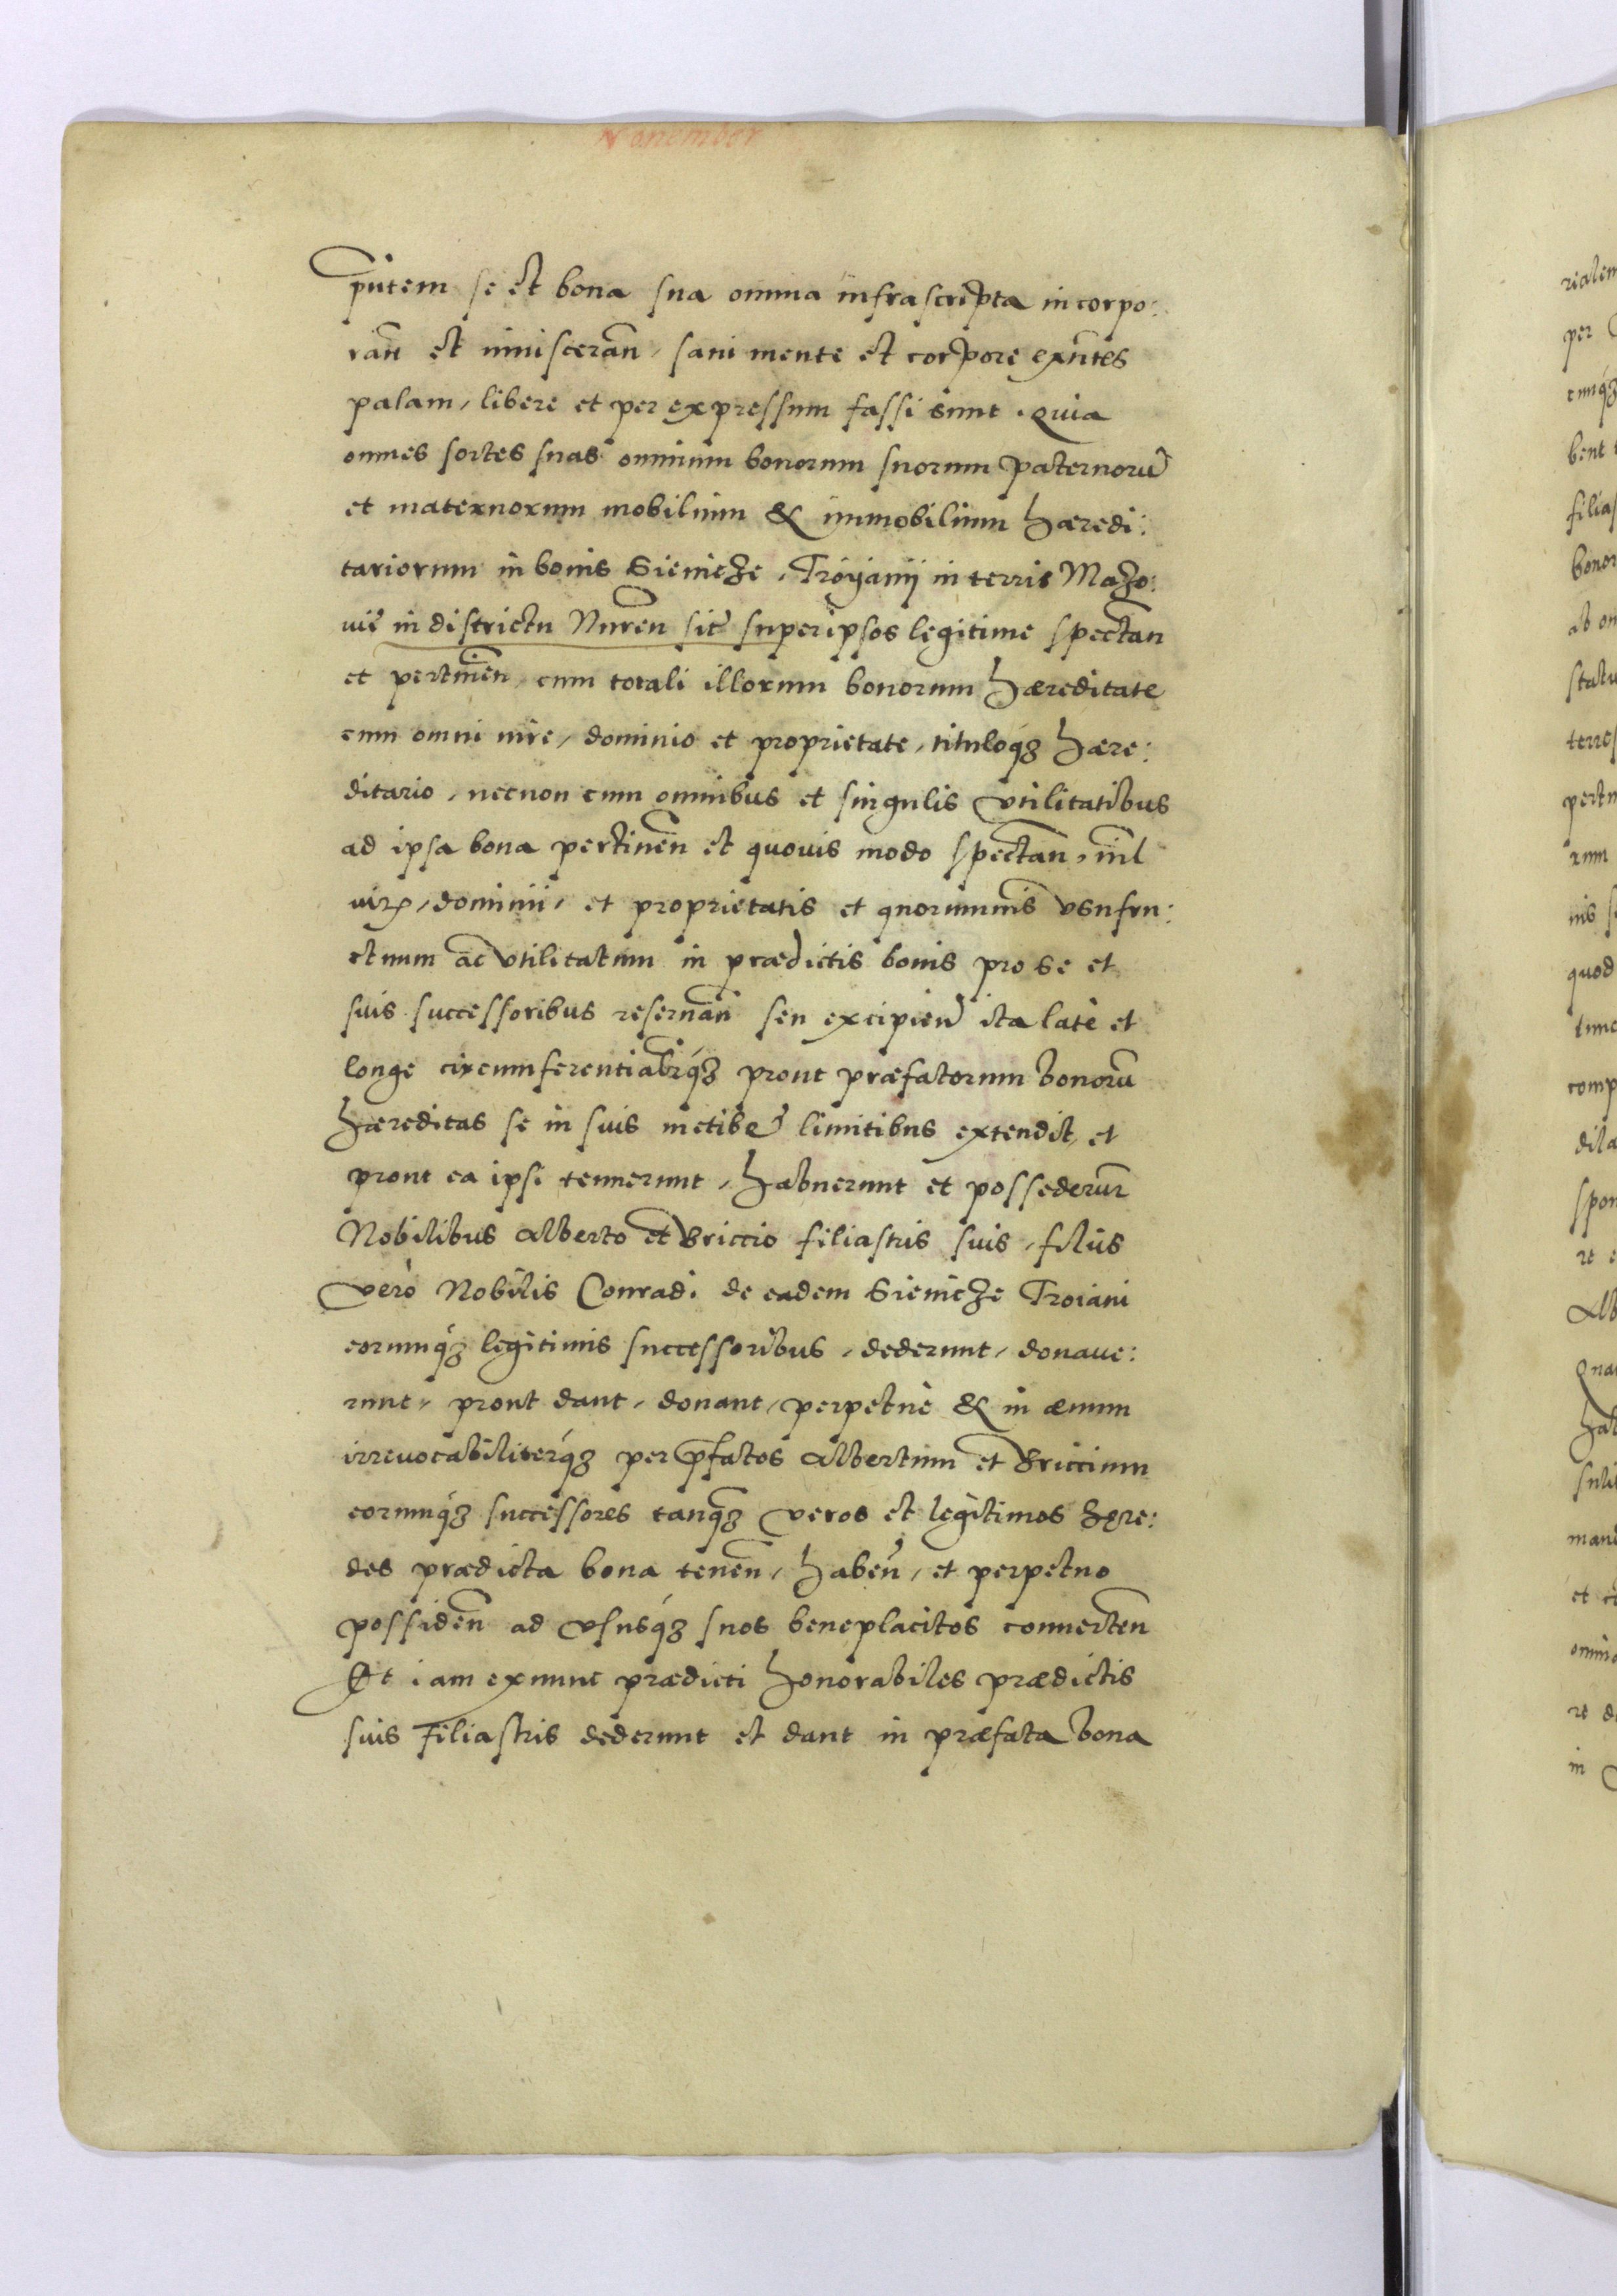 Nouember
pñtem se et bona sua omnia infrascripta incorpo:
rañ et inuisceran̄, sani mente et corpore exñtes
palam, libere et per expressum fassi sunt. Quia
omnes sortes suas omnium bonorum suorum paternorũ
et maternorum mobilium & immobilium hæredi:
tariorum in bonis Sienicze, Troyanij in terris Mazo:
uiẽ in districtu Nuren̄ sit̃ super ipsos legitime spectan̄
et pertinen̄, cum totali illorum bonorum hæreditate
cum omni iure, dominio et proprietate, tituloq́ꝫ hære:
ditario, necnon cum omnibus et singulis vtilitatibus
ad ipsa bona pertinen̄ et quouis modo spectan̄, nil̄
iurꝭ, dominii, et proprietatis et quorumuis vsufru:
ctuum ac vtilitatum in prædictis bonis pro se et
suis successoribus reseruan̄ seu excipien̄ ita latè et
longe circumferentialr̃q́ꝫ prout præfatorum bonorũ
hæreditas se in suis metibꝰ limitibus extendit, et
prout ea ipsi tenuerunt, habuerunt et possederunt
Nobilibus Alberto et Briccio filiastris suis, filiis
verò Nobilis Conradi de eadem Sienicze Troiani
eorumq́ꝫ legitimis successoribus, dederunt, donaue:
runt, prout dant, donant, perpetuè & in æuum
irreuocabiliterq́ꝫ per p̄fatos Albertum et Briccium
eorumq́ꝫ successores tanq̃ꝫ veros et legitimos hęre:
des prædicta bona tenen̄, haben̄, et perpetuo
possiden̄ ad vsusq́ꝫ suos beneplacitos conuerten̄
Et iam exnunc prædicti honorabiles prædictis
suis Filiastris dederunt et dant in præfata bona